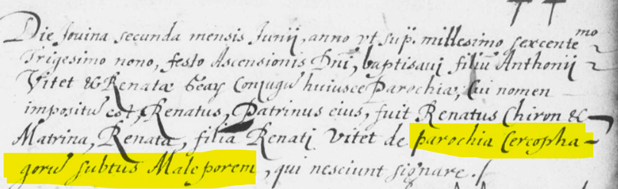 Die Jovina secunda mensis Junij, anno vt sup. millesimo sexcente mo
Trigesimo nono, festo Ascensionis Dni, baptisavi filiu Anthonij
Vitet & Renatæ Geay Conjugu huiusce Parochiæ, Cui nomen
impositu est, Renatus, Patrinus eius, fuit Renatus Chiron &
Matrina, Renata, filia Renati Vitet de parochia Cercopha-
goru subtus Maleporem, qui nesciunt signare ./